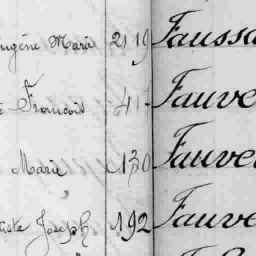 ugène Marie 2119 Faussa
François 417 Fauve
Marie 130 Fauve
iste Joseph 192 Fauve